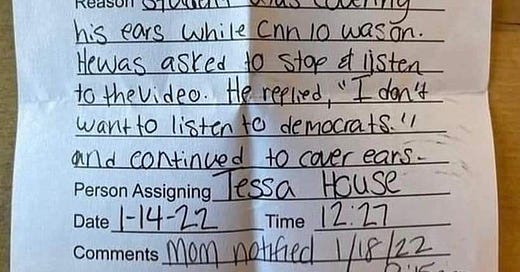 Reason Student was covering
his ears while Cnn 10 was on.
He was asked to stop & listen
to the video. He replied, "I don't
want to listen to democrats."
and continued to cover ears.
Person Assigning Tessa House
Date 1-14-22 Time 12:27
Comments Mom notified 1/18/22